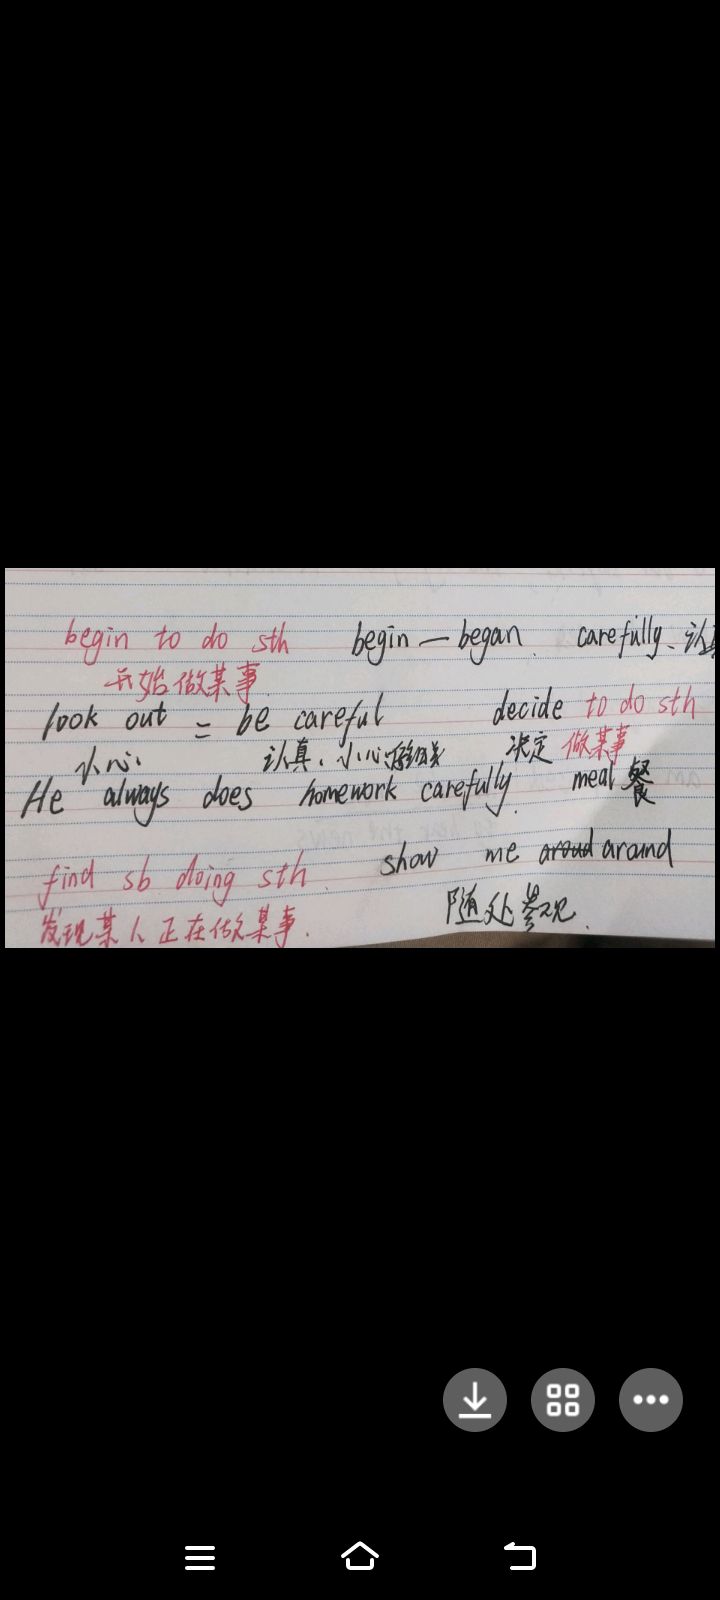 begin to do sth begin — began. carefully、认
开始做某事.
look out = be careful decide to do sth
小心. 认真、小心 决定 做某事
He always does homework carefully. meal 餐
find sb doing sth. show me aroud around
发现某人正在做某事. 随处参观.